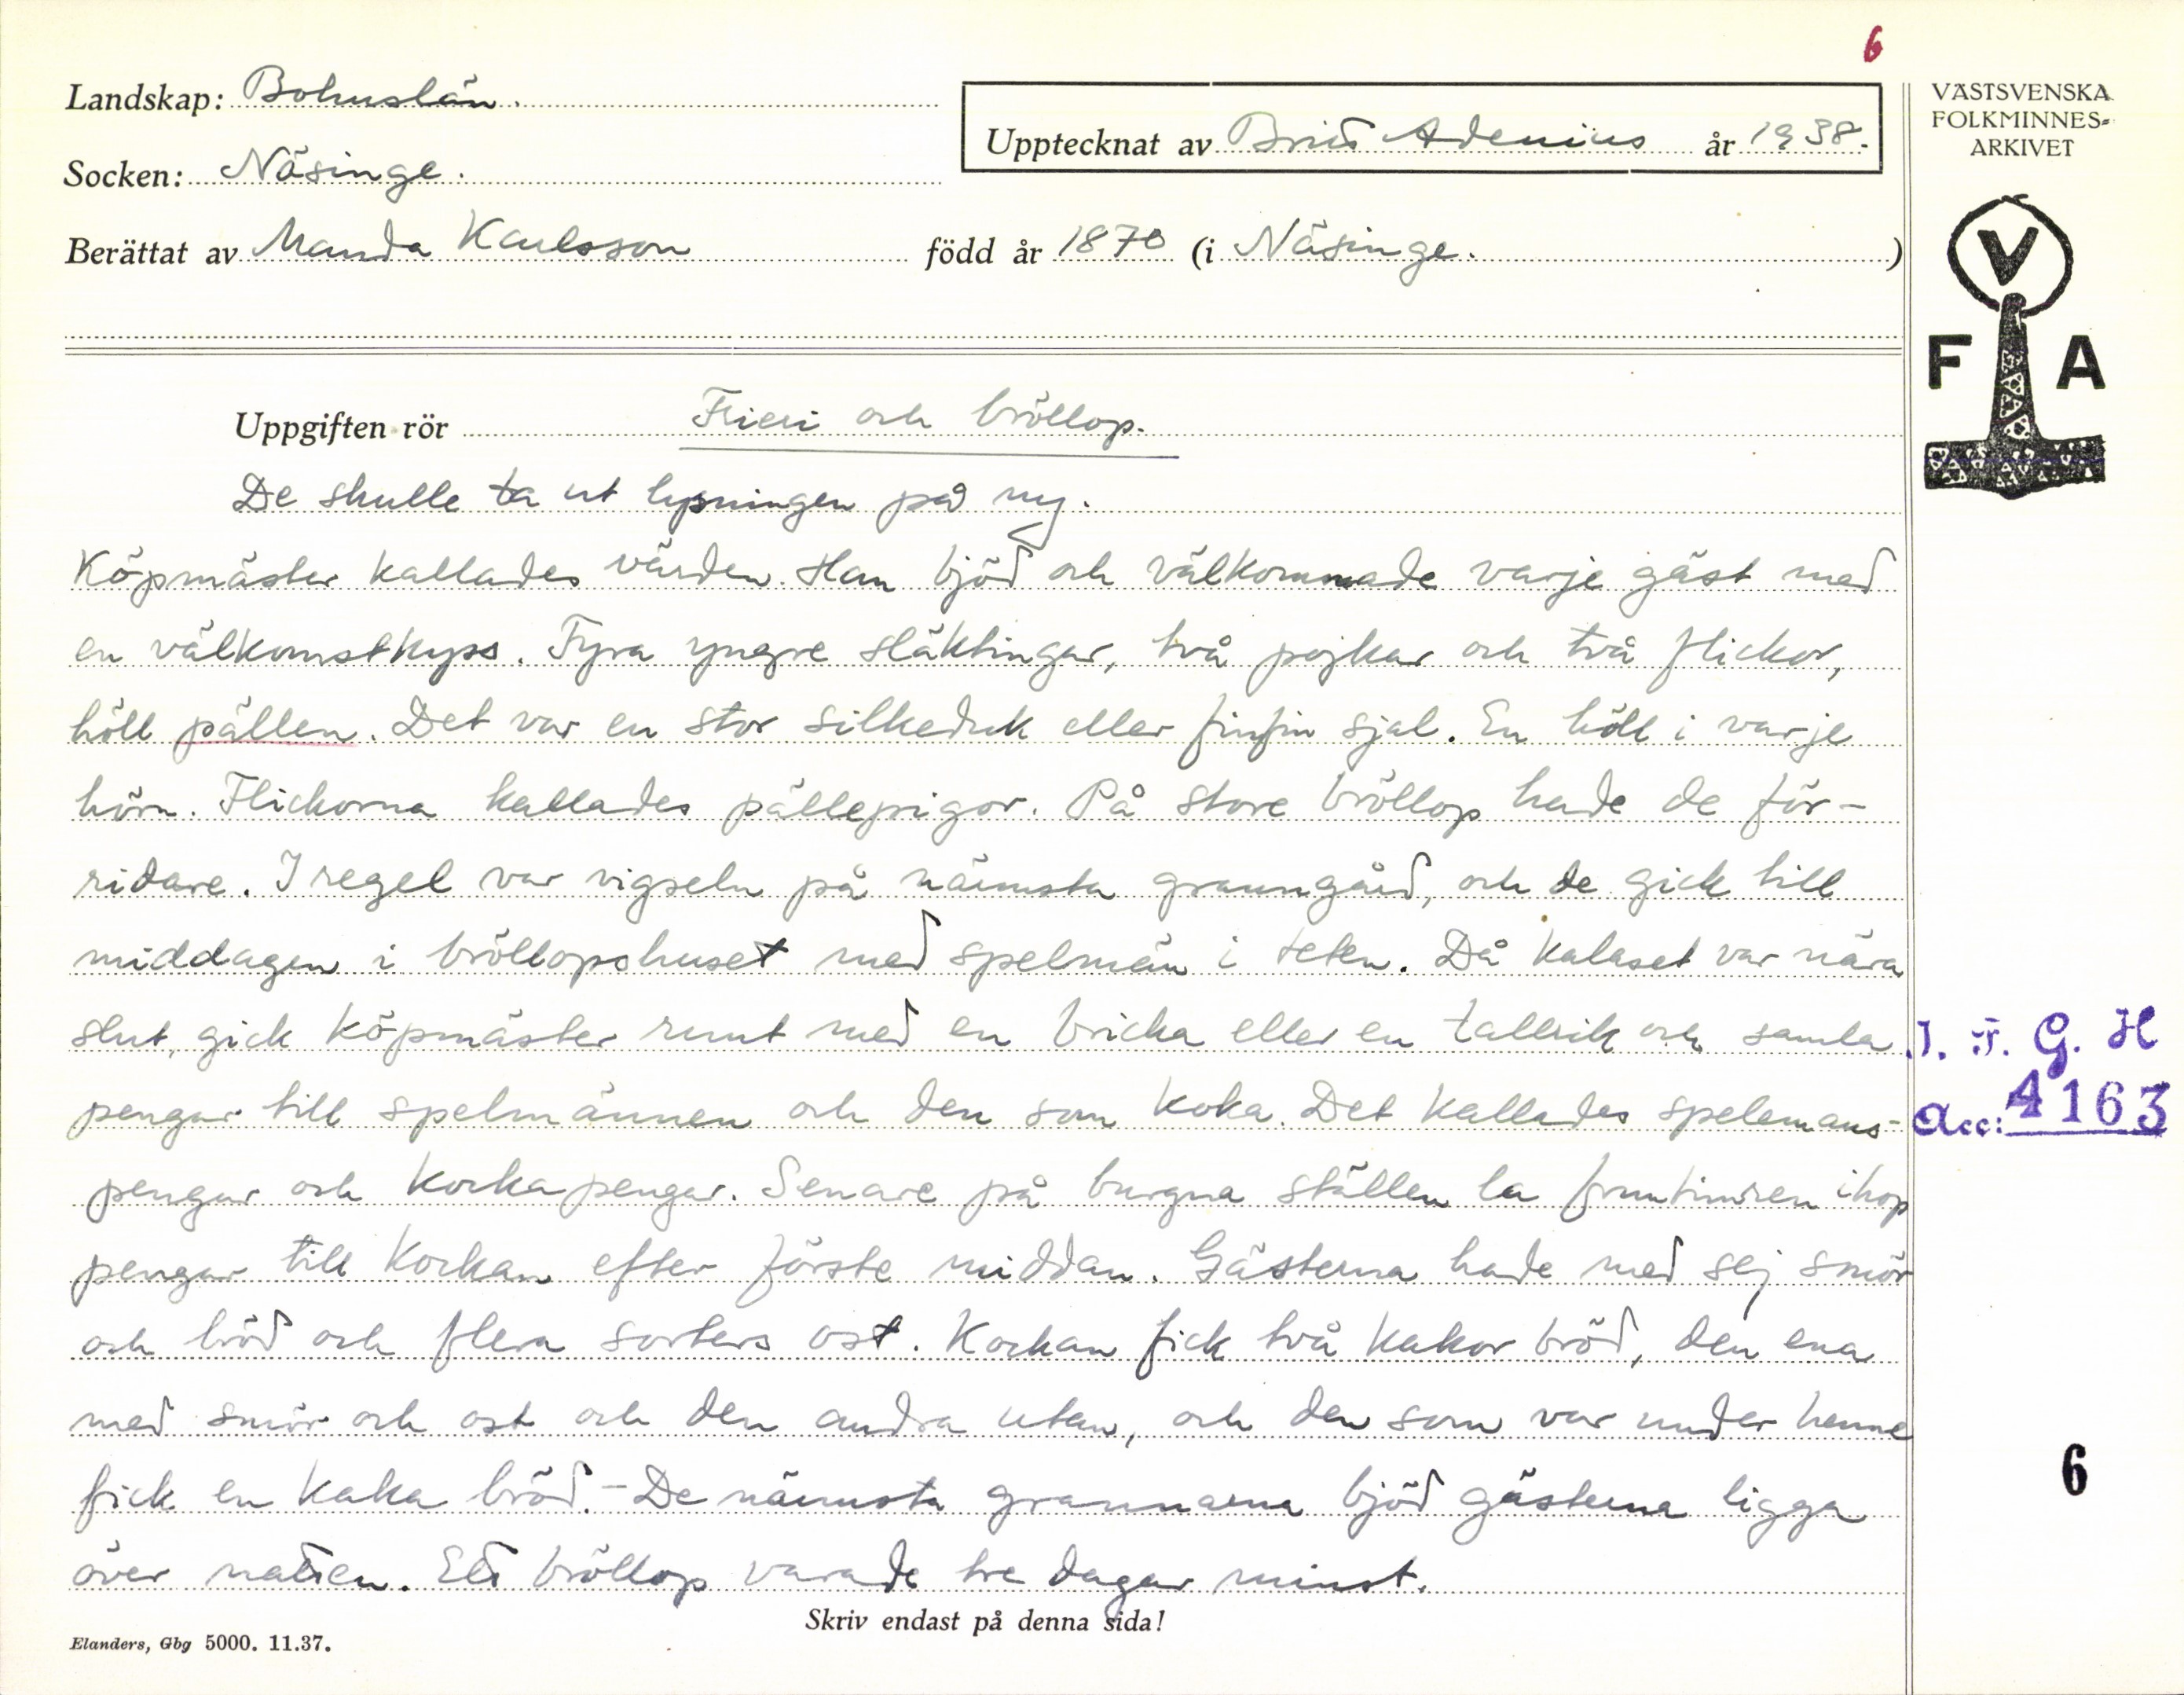 6
Landskap: Bohuslän.
Upptecknat av Britt Adenius år 1938.
Socken: Näsinge.
Berättat av Manda Karlsson född år 1870 (i Näsinge.)
VÄSTSVENSKA
FOLKMINNES-
ARKIVET
V
F A
Uppgiften rör Frieri och bröllop.
De skulle ta ut lysningen på ny.
Köpmäster kallades värden. Han bjöd och välkommade varje gäst med
en välkomstkyss. Fyra yngre släktingar, två pojkar och två flickor,
höll pällen. Det var en stor silkeduk eller finfin sjal. En höll i varje
hörn. Flickorna kallades pällepigor. På store bröllop hade de för-
ridare. I regel var vigseln på närmsta granngård, och de gick till
middagen i bröllopshuset med spelmän i teten. Då kalaset var nära
slut, gick köpmäster runt med en bricka eller en tallrik och samla
pengar till spelmännen och den som koka. Det kallades spelemans-
pengar och kockapengar. Senare på burgna ställen la fruntimren ihop
pengar till kockan efter förste middan. Gästerna hade med sej smör
och bröd och flera sorters ost. Kockan fick två kakor bröd, den ena
med smör och ost och den andra utan, och den som var under henne
fick en kaka bröd. - De närmsta grannarna bjöd gästerna ligga
över natten. Ett bröllop varade tre dagar minst.
I. F. G. H
Acc: 4163
6
Skriv endast på denna sida!
Elanders, Gbg 5000. 11.37.